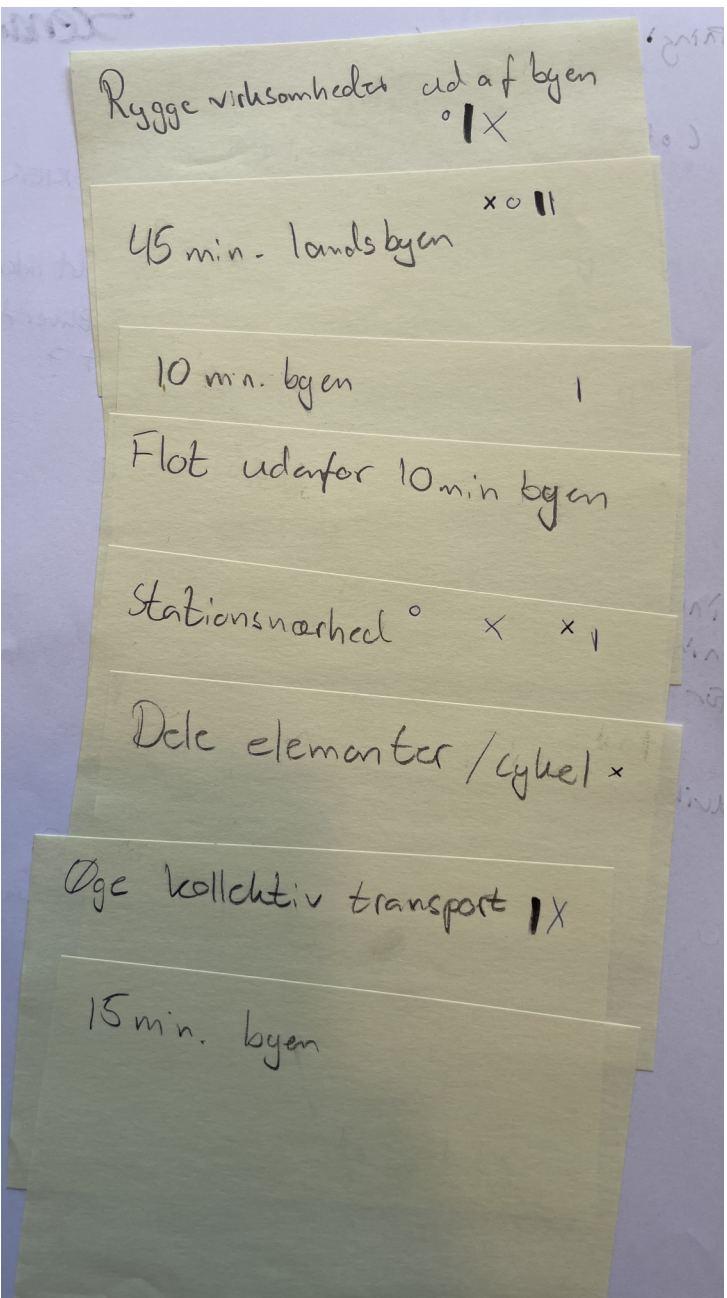 Rygge virksomheder ud af byen
o | X
x o ||
45 min. landsbyen
10 min. byen |
Flot udenfor 10 min byen
Stationsnærhed o x x |
Dele elementer / cykel x
Øge kollektiv transport | X
15 min. byen